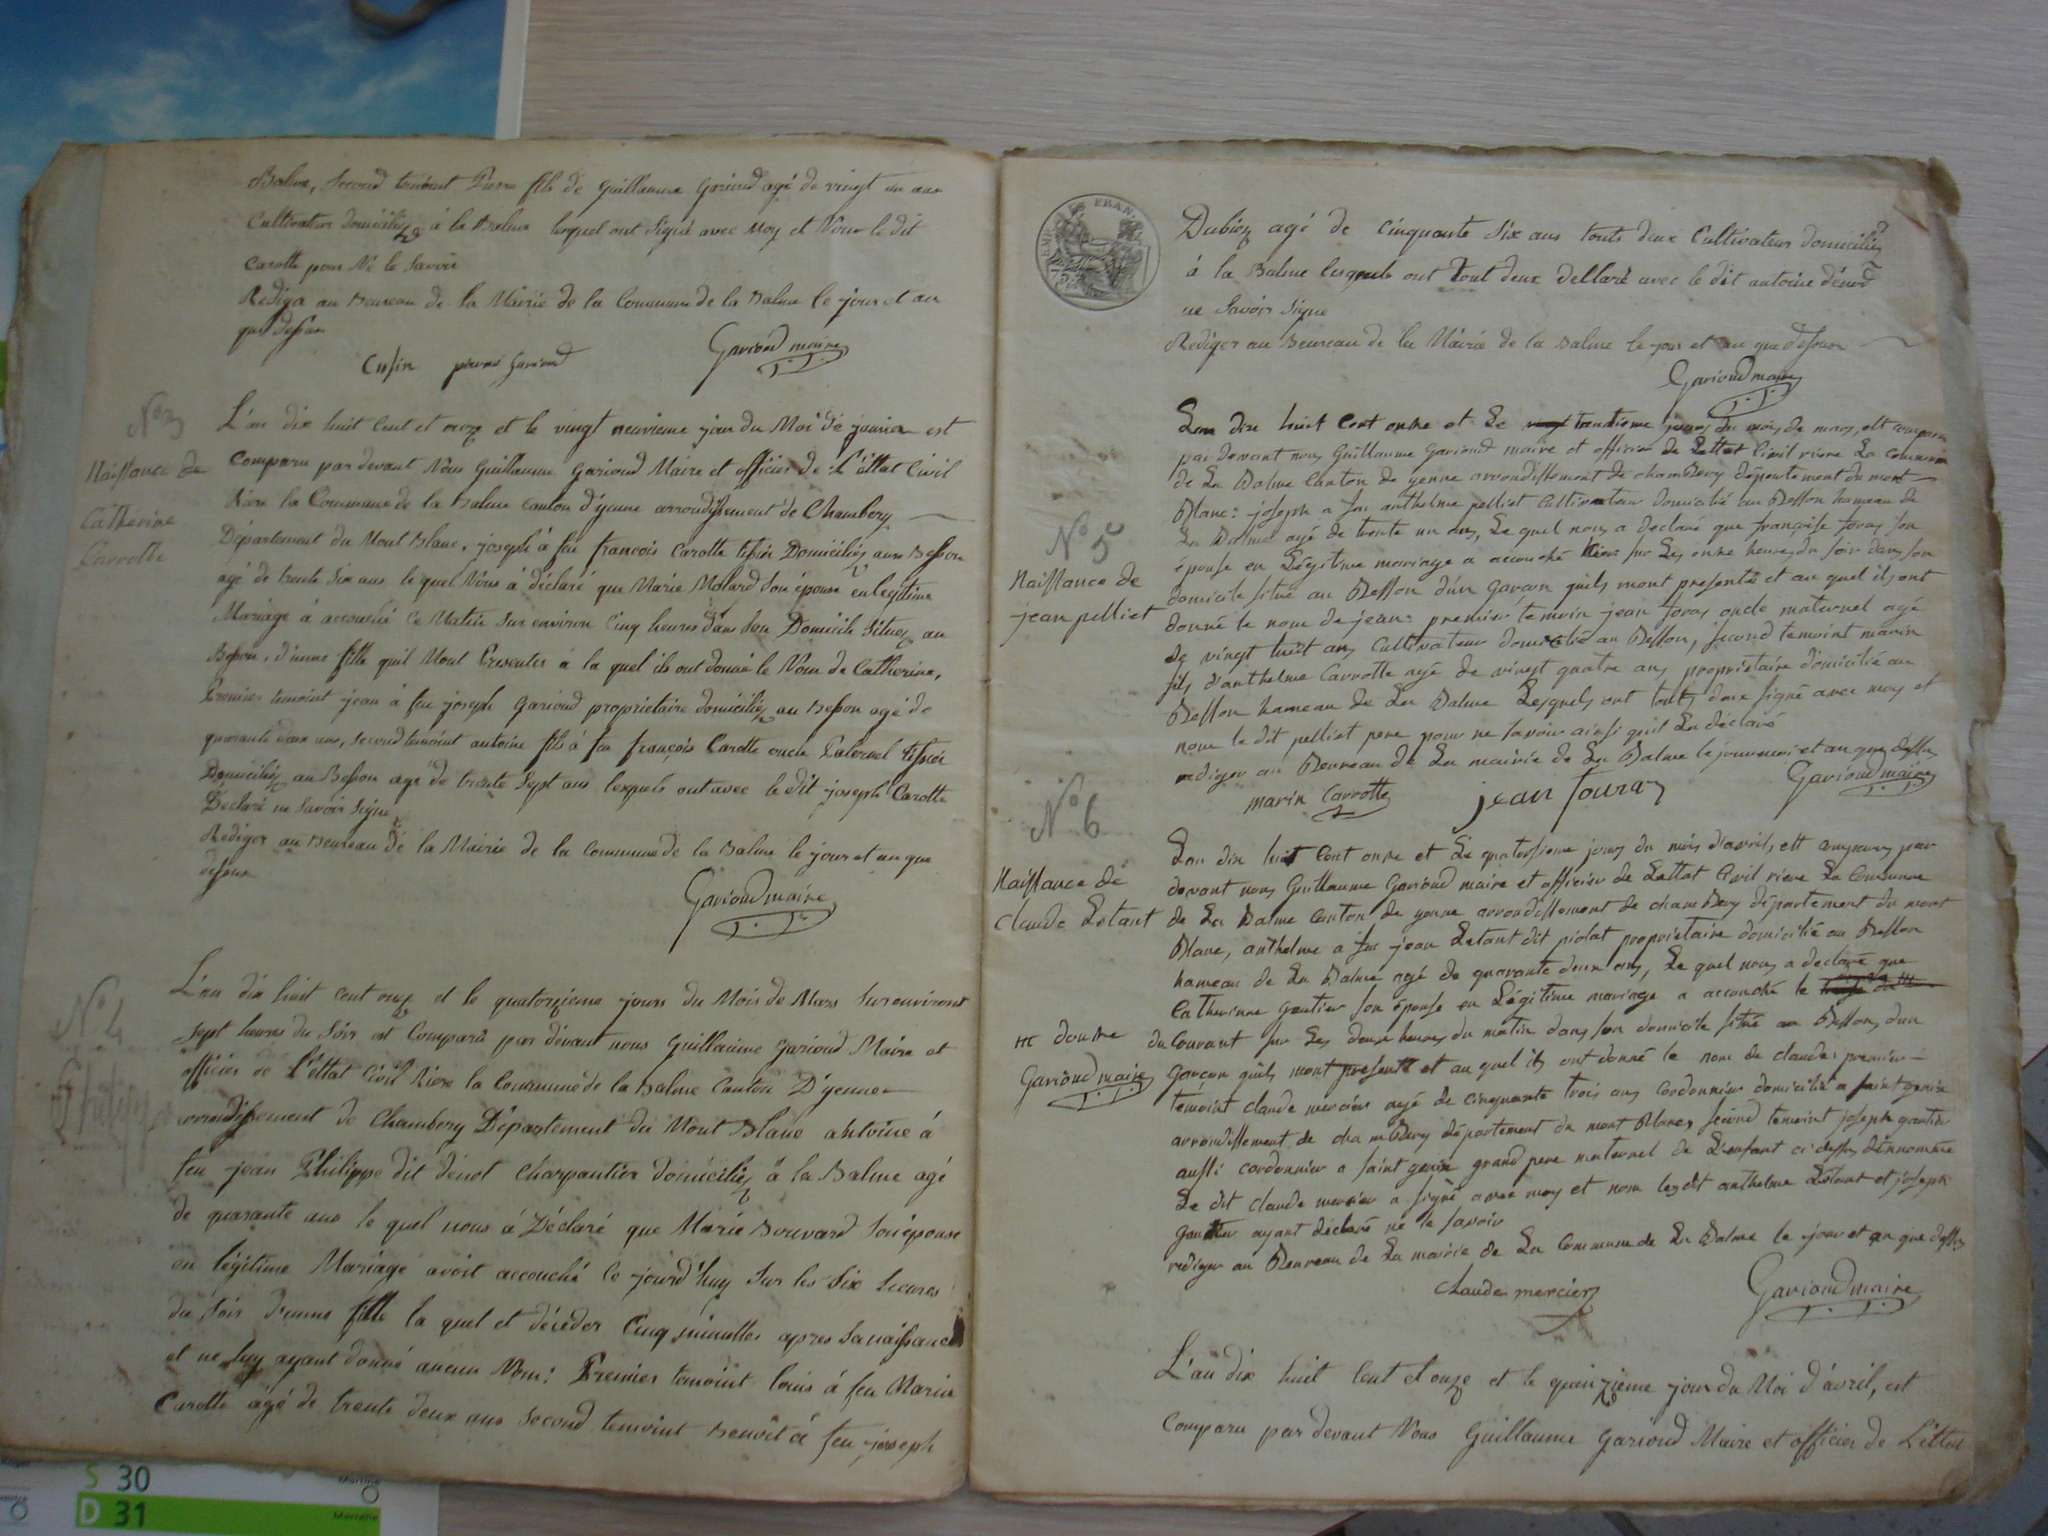 Balme, second temoint Pierre fils de Guillaume Garioud agé de vingt un ans
Cultivateur domiciliéz à la Balme lesquel ont signé avec Moy et Non le dit
Carotte pour Ne le savoir
Rediga au Beureau de la Mairie de la Commune de la Balme le jour et an
que dessus
Cusin pierre Garioud Garioud maire
N° 3
Naissance de
Catherine
Carrotte
L'an dix huit Cent et onze et le vingt neuvieme jour du Moi de janvier est
Comparu par devant Nous Guillaume Garioud Maire et officier de L'éttat Civil
Riere la Commune de la Balme canton d'yenne arrondissement de Chambery
Département du Mont Blanc, joseph à feu françois Carotte tissier Domiciliéz aux Besson
agé de trente six ans le quel Nous à déclaré que Marie Molard son épouse en legitime
Mariage à accouché ce Matin sur environ Cinq heures dans son Domicile situez au
Besson, d'unne fille quil Mont Presenter à la quel ils ont donné le Nom de Catherine,
Premier temoint jean à feu joseph Garioud proprietaire domiciliéz au Besson agé de
quarante deux ans, second temoint antoine fils à feu françois Carotte oncle Paternel tissier
Domiciliéz au Besson agé de trente sept ans lesquels ont avec le dit joseph Carotte
Déclaré ne savoir signe
Rediger au Beureau de la Mairie de la Commune de la Balme le jour et an que
dessus
Garioud maire
N° 4
Philippe
L'an dix huit cent onze et le quatorzieme jours du Mois de Mars sur environt
sept heures du soir est Comparû par devant nous Guillaume Garioud Maire et
officier de L'éttat Civil Riere la Commune de la Balme Canton D'yenne
arrondissement de Chambery Département du Mont Blanc antoine à
feu jean Philippe dit dénot Charpantier domiciliéz à la Balme agé
de quarante ans le quel nous à Déclaré que Marie Bouvard son épouse
en légitime Mariage avoit accouché ce jourd'huy sur les six heures
du soir d'unne fille la quel et décéder Cinq minuttes apres sa naissance
et ne luy ayant donné aucun Nom: Premier temoint louis à feu Marin
Carotte âgé de trente deux ans second temoint Benoit à feu joseph
Dubiez agé de cinquante six ans touts deux Cultivateur domiciliéz
à la Balme lesquels ont tout deux dellaré avec le dit antoine dénod
ne savoir signe
Rediger au Beureau de la Mairie de la Balme le jour et an que dessus
Garioud maire
N° 5e
Naissance de
jean pelliet
Lan dix huit Cent onze et Le trentieme jours du mois de mars, est comparu
par devant nous Guillaume Garioud maire et officier de Lettat Civil riere La commune
de La Balme Canton de yenne arrondissement de chamBery département du mont
Blanc: joseph a feu anthelme pelliet Cultivateur domicilié au Besson hameau de
La Balme agé de trente un ans, Le quel nous a déclaré que françoise foray son
épouse en Légitime mariage a accouché hier sur Les onze heures du soir dans son
domicile situé au Besson d'un Garçon quils mont presenté et au quel ils ont
donné le nom de jean: premier temoin jean foray oncle maternel agé
de vingt huit ans Cultivateur domicilié au Besson, second temoint marin
fils d'anthelme Carrotte agé de vingt quatre ans proprietaire domicilié au
Besson hameau de La Balme Lesquels ont touts deux signé avec moy et
non le dit pelliet pere pour ne savoir ainsi quil La déclaré
rediger au Beureau de La mairie de La Balme le jour mois et an que dessus
marin Carrotte jean fouray Garioud maire
N° 6
Naissance de
claude Letant
Lan dix huit Cent onze et Le quatorsieme jours du mois d'avril, est comparu par
devant nous Guillaume Garioud maire et officier de Lettat Civil riere La Commune
de La Balme Canton de yenne arrondissement de chamBery département du mont
Blanc, anthelme a feu jean Letant dit piolat proprietaire domicilié au Besson
hameau de La Balme agé de quarante deux ans, Le quel nous a déclaré que
Catherinne Gautier son épouse en Légitime mariage a accouché le
m douze
Garioud maire
du Courant sur Les deux heures du matin dans son domicile situé au Besson, dun
Garçon quils mont presenté et au quel ils ont donné le nom de claude; premier
témoint claude mercier agé de cinquante trois ans Cordonnier domicilié a saint genix
arrondissement de chamBery département du mont Blanc, second temoint joseph gautier
aussi cordonnier a saint genix grand pere maternel de L'enfant ci dessus dénnommé
Le dit claude mercier a signé avec moy et non lesdit anthelme Létant et joseph
Gautier ayant déclaré ne le savoir
rediger au Beureau de La mairie de La Commune de La Balme le jour et an que dessus
Claude mercier Garioud maire
L'an dix huit Cent et onze et le quinzieme jour du Moi d'avril, est
Comparu par devant Nous Guillaume Garioud Maire et officier de L'éttat
S 30
D 31